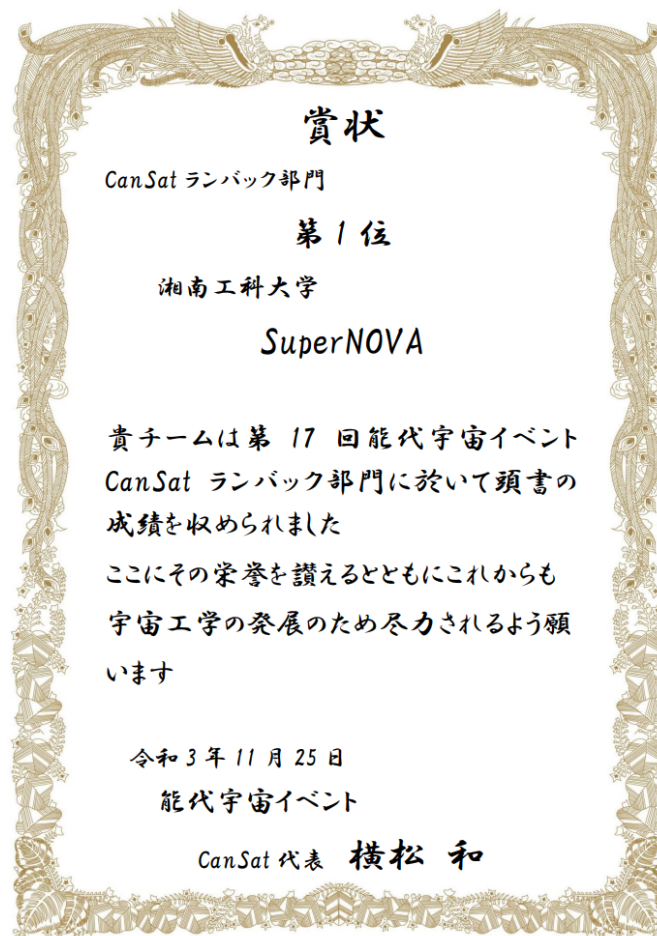 賞状
CanSat ランバック部門
第 1 位
湘南工科大学
SuperNOVA
貴チームは第 17 回能代宇宙イベント
CanSat ランバック部門に於いて頭書の
成績を収められました
ここにその栄誉を讃えるとともにこれからも
宇宙工学の発展のため尽力されるよう願
います
令和 3 年 11 月 25 日
能代宇宙イベント
CanSat 代表 横松 和